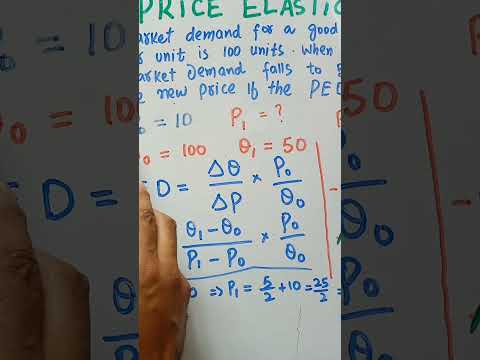 PRICE ELASTIC
arket demand for a good
unit is 100 units. When
arket Demand falls to
new price If the PED
= 10 P₁ = ?
₀ = 100 θ₁ = 50
D = Δθ/ΔP × P₀/θ₀
θ₁-θ₀/P₁-P₀ × P₀/θ₀
⇒ P₁ = 5/2 + 10 = 25/2 =